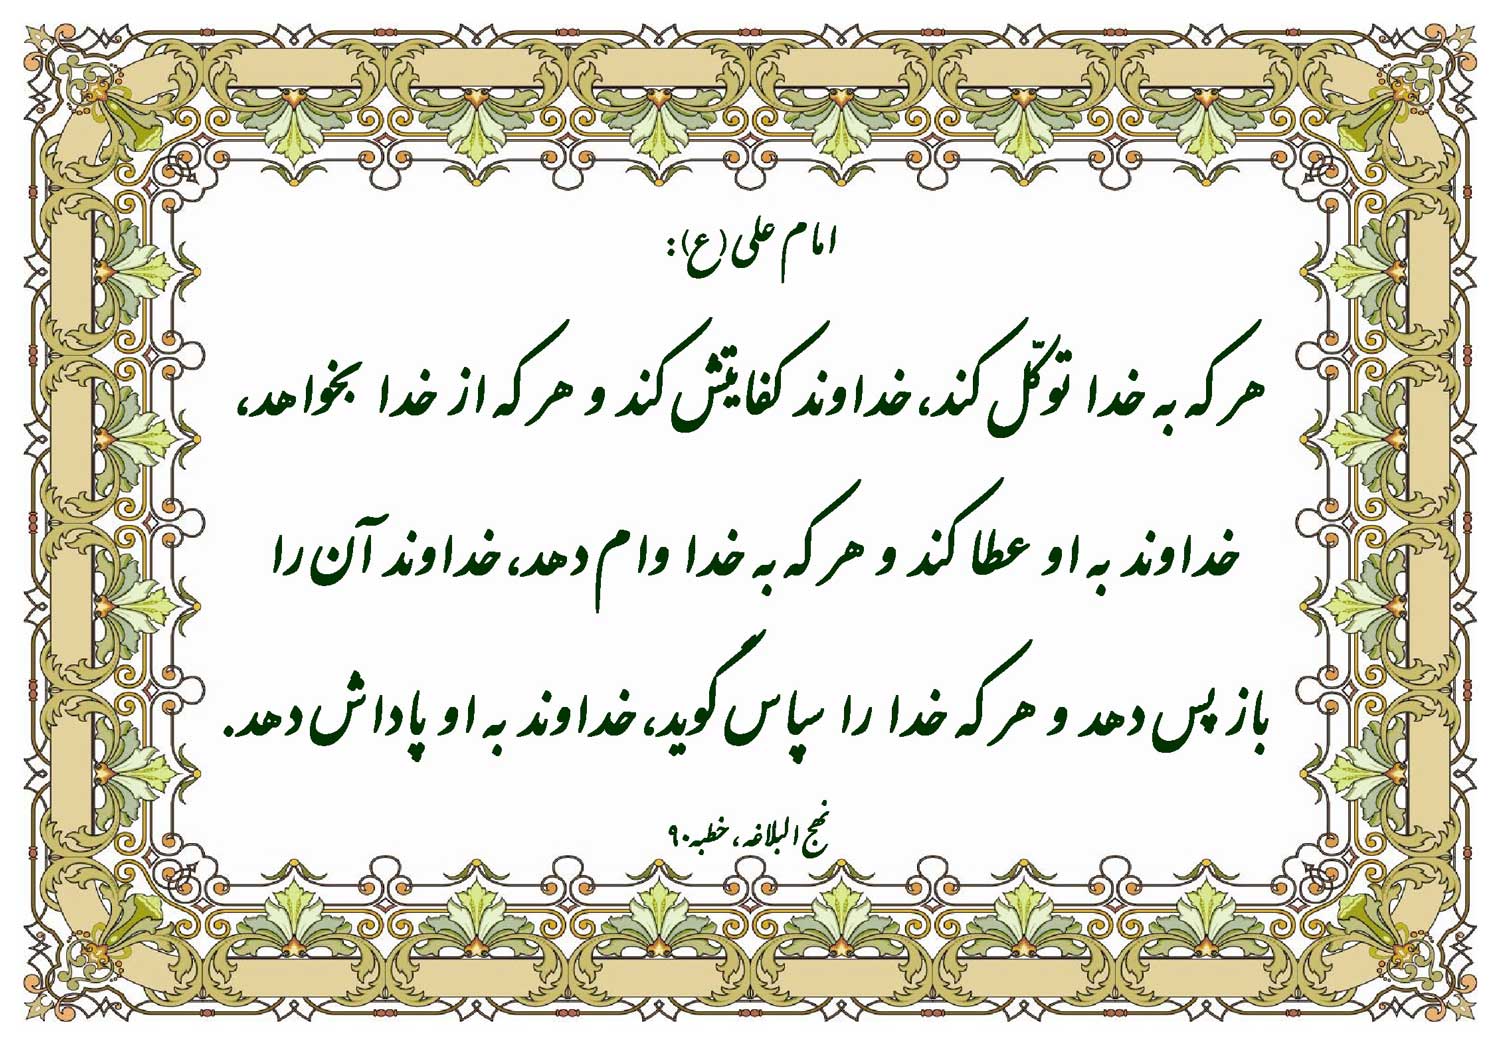 امام علی(ع):
هر که به خدا توکّل کند، خداوند کفایتش کند و هر که از خدا بخواهد،
خداوند به او عطا کند و هر که به خدا وام دهد، خداوند آن را
باز پس دهد و هر که خدا را سپاس گوید، خداوند به او پاداش دهد.
نهج البلاغه، خطبه ۹۰